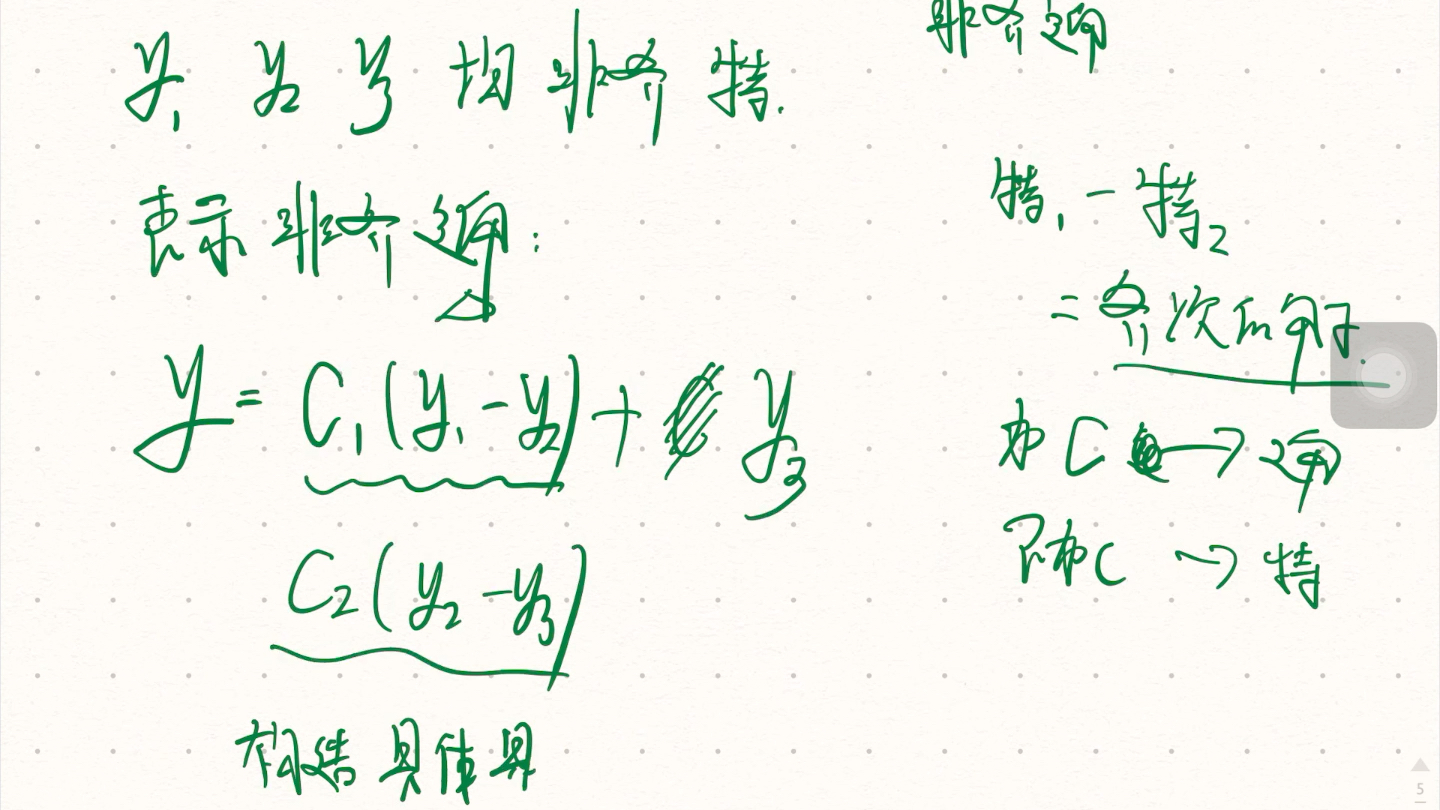 y₁ y₂ y₃ 均非齐特.
表示非齐通:
y = C₁(y₁-y₂) + y₃
C₂(y₂-y₃)
具体
非齐通
特₁-特₂
=齐次的
加C → 通
不加C → 特
5